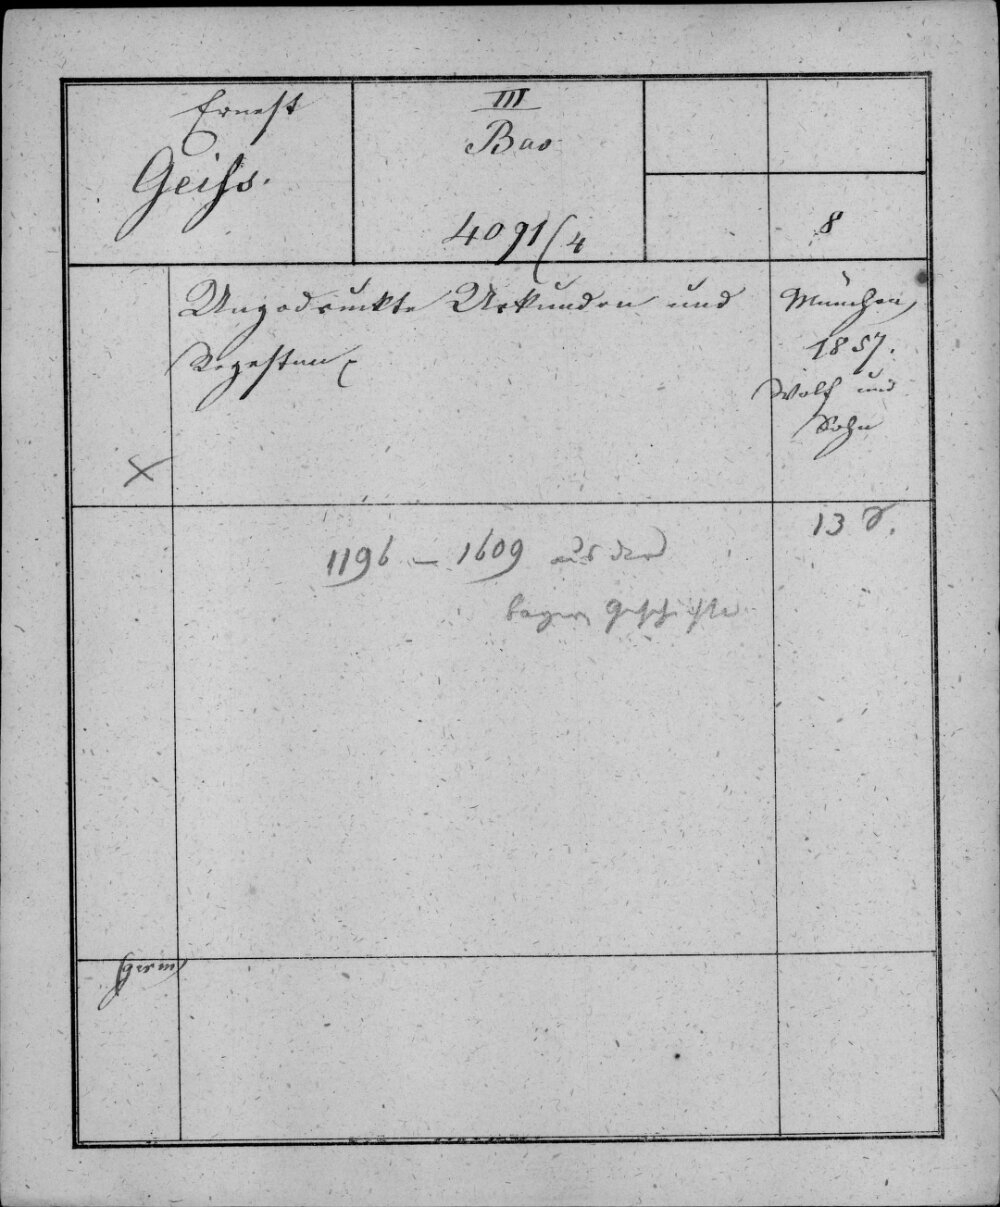 Ernest
Geiss.
III
Bav
4091/4
8
Ungedruckte Urkunden und
Regesten
München
1857.
Wolf und
Sohn
X
13
1196 – 1609 aus der
bayer Geschichte
germ